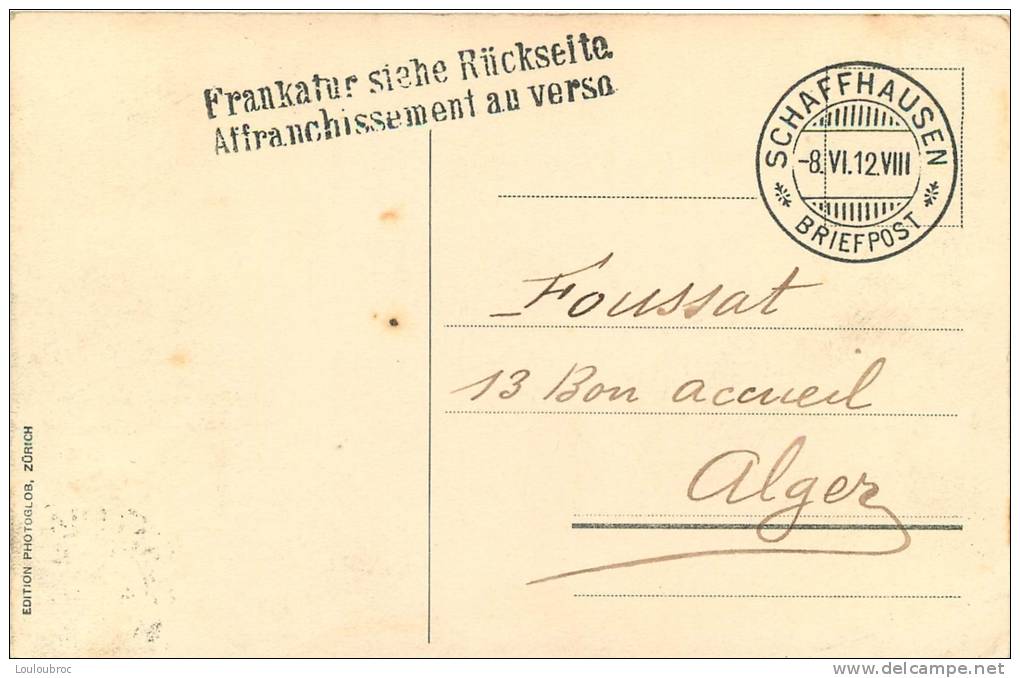 Frankatur siehe Rückseite.
Affranchissement au verso
SCHAFFHAUSEN
-8.VI.12.VIII
BRIEFPOST
Foussat
13 Bon accueil
Alger
EDITION PHOTOGLOB, ZÜRICH
Louloubroc
delcampe.net